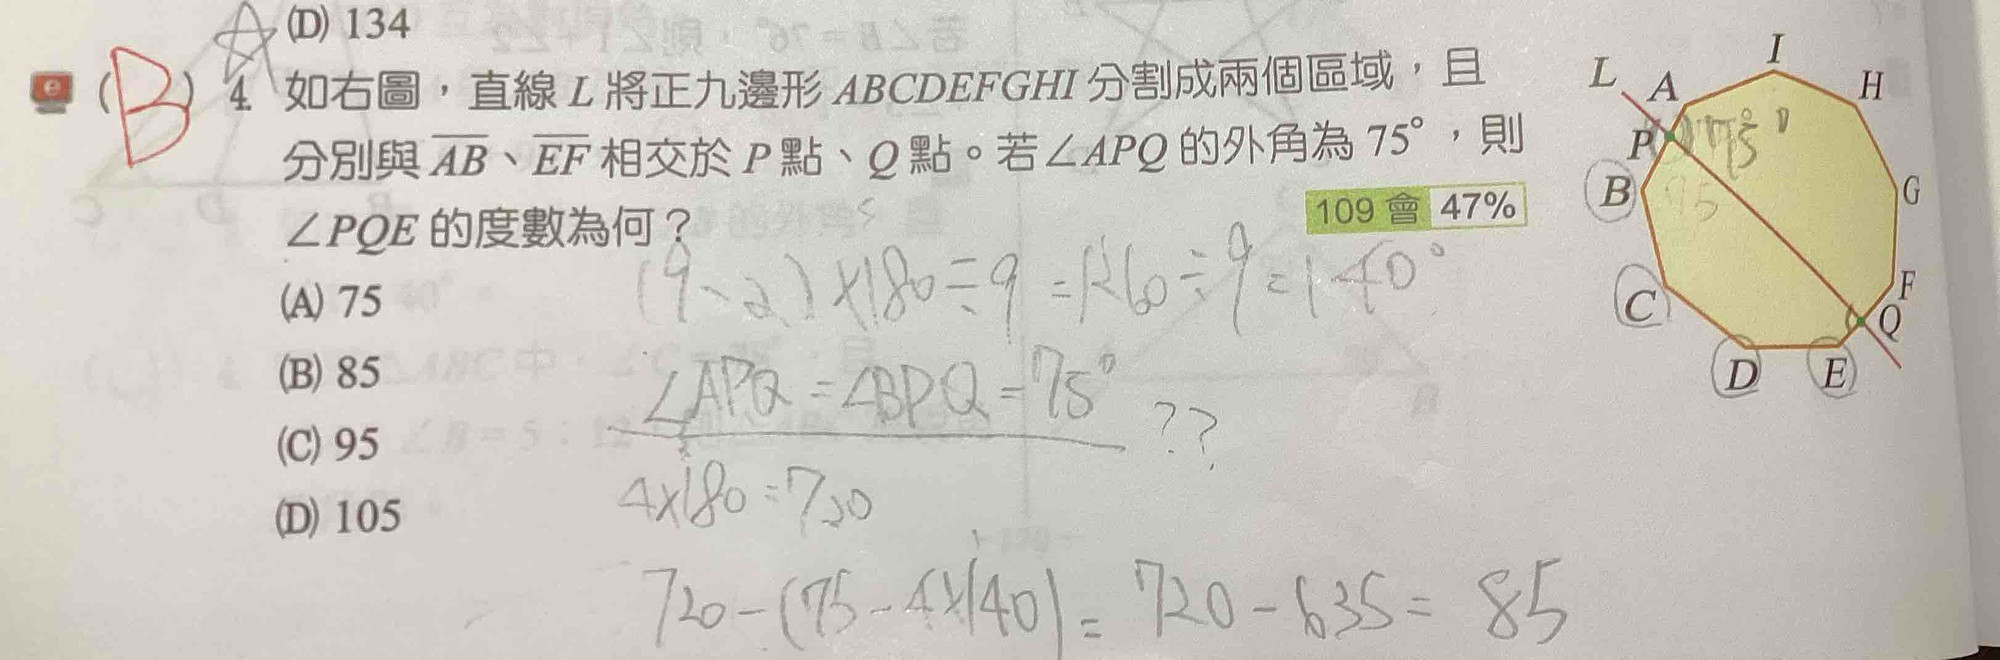 (D) 134
(B) 4. 如右圖，直線 L 將正九邊形 ABCDEFGHI 分割成兩個區域，且
分別與 AB、EF 相交於 P 點、Q 點。若∠APQ 的外角為 75°，則
∠PQE 的度數為何？
109 會 47%
(A) 75
(B) 85
(C) 95
(D) 105
(9-2)×180÷9=1260÷9=140°
∠APQ=∠BPQ=75° ??
4×180=720
720-(75-4×140)=720-635=85
L A I H
P 75°
B 75 G
C F
Q
D E